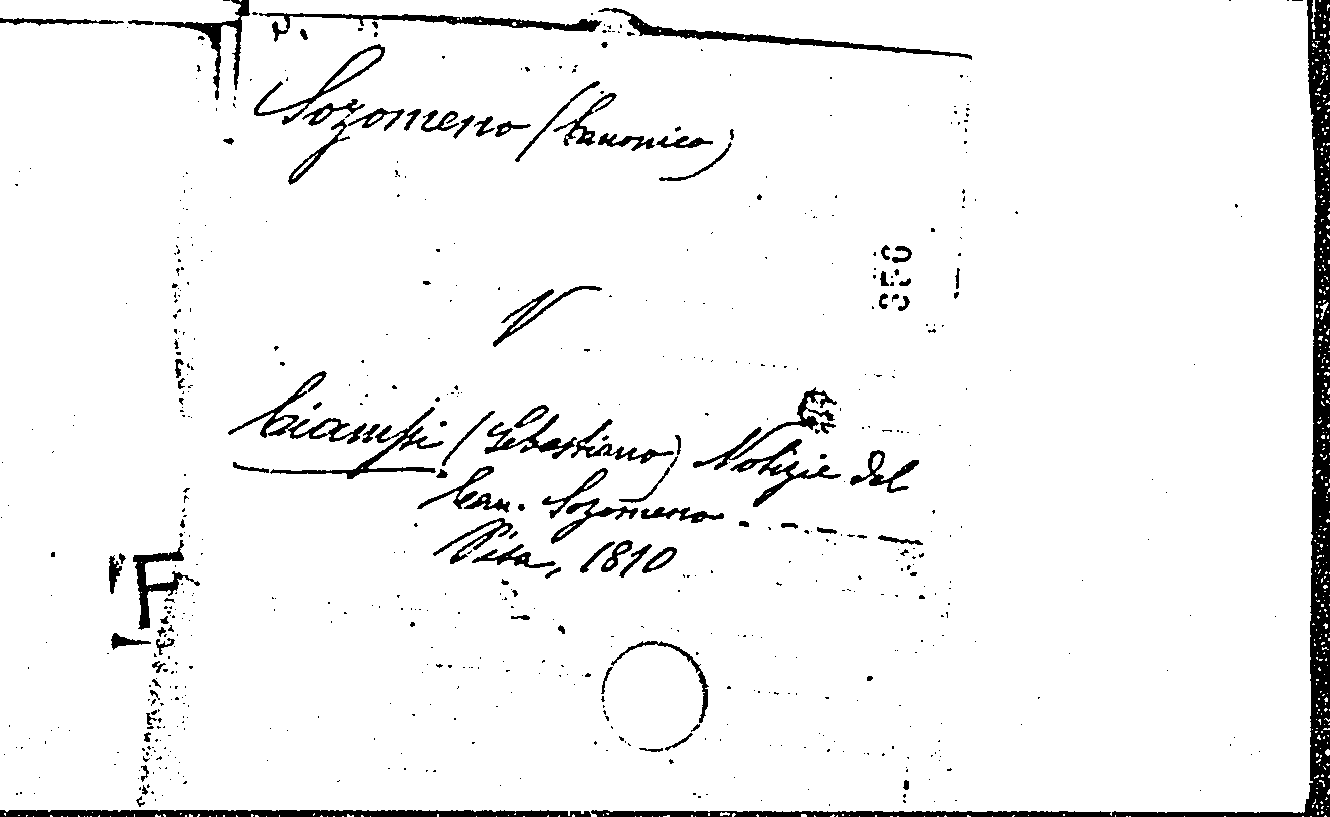 Sozomeno (Canonico)
V
Ciampi (Sebastiano) Notizie del
Can. Sozomeno - - - -
Pisa, 1810